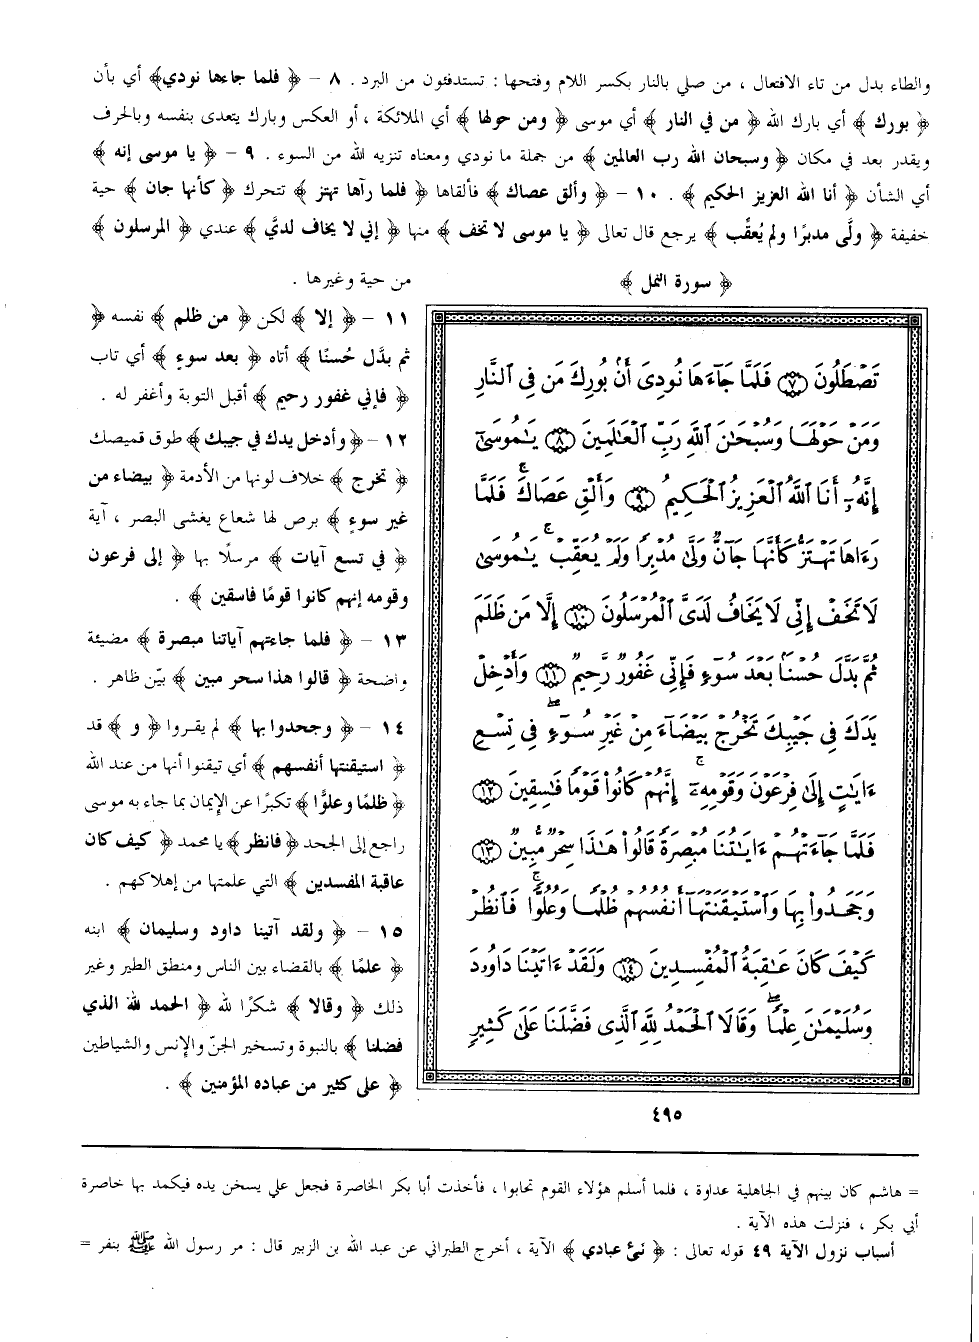 والطاء بدل من تاء الافتعال ، من صلي بالنار بكسر اللام وفتحها : تستدفئون من البرد . ٨ – ﴿ فلما جاءها نودي﴾ أي بأن
﴿ بورك ﴾ أي بارك الله ﴿ من في النار ﴾ أي موسى ﴿ ومن حولها ﴾ أي الملائكة ، أو العكس وبارك يتعدى بنفسه وبالحرف
ويقدر بعد في مكان ﴿ وسبحان الله رب العالمين ﴾ من جملة ما نودي ومعناه تنزيه الله من السوء . ٩ – ﴿ يا موسى إنه ﴾
أي الشأن ﴿ أنا الله العزيز الحكيم ﴾ . ١٠ – ﴿ وألق عصاك ﴾ فألقاها ﴿ فلما رآها تهتز ﴾ تتحرك ﴿ كأنها جان ﴾ حية
خفيفة ﴿ ولَّى مدبرًا ولم يُعقِّب ﴾ يرجع قال تعالى ﴿ يا موسى لا تخف ﴾ منها ﴿ إني لا يخاف لديَّ ﴾ عندي ﴿ المرسلون ﴾
من حية وغيرها .
١١ – ﴿ إلا ﴾ لكن ﴿ من ظلم ﴾ نفسه ﴿
ثم بدَّل حُسنًا ﴾ أتاه ﴿ بعد سوءٍ ﴾ أي تاب
﴿ فإني غفور رحيم ﴾ أقبل التوبة وأغفر له .
١٢ –﴿ وأدخل يدك في جيبك ﴾ طوق قميصك
﴿ تخرج ﴾ خلاف لونها من الأدمة ﴿ بيضاء من
غير سوءٍ ﴾ برص لها شعاع يغشى البصر ، آية
﴿ في تسع آيات ﴾ مرسلًا بها ﴿ إلى فرعون
وقومه إنهم كانوا قومًا فاسقين ﴾ .
١٣ – ﴿ فلما جاءتهم آياتنا مبصرة ﴾ مضيئة
واضحة ﴿ قالوا هذا سحر مبين ﴾ بيّن ظاهر .
١٤ – ﴿ وجحدوا بها ﴾ لم يقروا ﴿ و ﴾ قد
﴿ استيقنتها أنفسهم ﴾ أي تيقنوا أنها من عند الله
﴿ ظلمًا وعلوًّا ﴾ تكبرًا عن الإيمان بما جاء به موسى
راجع إلى الجحد ﴿ فانظر ﴾ يا محمد ﴿ كيف كان
عاقبة المفسدين ﴾ التي علمتها من إهلاكهم .
١٥ – ﴿ ولقد آتينا داود وسليمان ﴾ ابنه
﴿ علمًا ﴾ بالقضاء بين الناس ومنطق الطير وغير
ذلك ﴿ وقالا ﴾ شكرًا لله ﴿ الحمد لله الذي
فضلنا ﴾ بالنبوة وتسخير الجنّ والإنس والشياطين
﴿ على كثير من عباده المؤمنين ﴾ .
﴿ سورة النمل ﴾
تَصۡطَلُونَ ٧ فَلَمَّا جَآءَهَا نُودِىَ أَنۢ بُورِكَ مَن فِى ٱلنَّارِ
وَمَنۡ حَوۡلَهَا وَسُبۡحَٰنَ ٱللَّهِ رَبِّ ٱلۡعَٰلَمِينَ ٨ يَٰمُوسَىٰٓ
إِنَّهُۥٓ أَنَا ٱللَّهُ ٱلۡعَزِيزُ ٱلۡحَكِيمُ ٩ وَأَلۡقِ عَصَاكَۚ فَلَمَّا
رَءَاهَا تَهۡتَزُّ كَأَنَّهَا جَآنٌّ وَلَّىٰ مُدۡبِرًا وَلَمۡ يُعَقِّبۡۚ يَٰمُوسَىٰ
لَا تَخَفۡ إِنِّى لَا يَخَافُ لَدَىَّ ٱلۡمُرۡسَلُونَ ١٠ إِلَّا مَن ظَلَمَ
ثُمَّ بَدَّلَ حُسۡنًۢا بَعۡدَ سُوٓءٍ فَإِنِّى غَفُورٌ رَّحِيمٌ ١١ وَأَدۡخِلۡ
يَدَكَ فِى جَيۡبِكَ تَخۡرُجۡ بَيۡضَآءَ مِنۡ غَيۡرِ سُوٓءٍۖ فِى تِسۡعِ
ءَايَٰتٍ إِلَىٰ فِرۡعَوۡنَ وَقَوۡمِهِۦٓۚ إِنَّهُمۡ كَانُوا۟ قَوۡمًا فَٰسِقِينَ ١٢
فَلَمَّا جَآءَتۡهُمۡ ءَايَٰتُنَا مُبۡصِرَةً قَالُوا۟ هَٰذَا سِحۡرٌ مُّبِينٌ ١٣
وَجَحَدُوا۟ بِهَا وَٱسۡتَيۡقَنَتۡهَآ أَنفُسُهُمۡ ظُلۡمًا وَعُلُوًّاۚ فَٱنظُرۡ
كَيۡفَ كَانَ عَٰقِبَةُ ٱلۡمُفۡسِدِينَ ١٤ وَلَقَدۡ ءَاتَيۡنَا دَاوُۥدَ
وَسُلَيۡمَٰنَ عِلۡمًاۖ وَقَالَا ٱلۡحَمۡدُ لِلَّهِ ٱلَّذِى فَضَّلَنَا عَلَىٰ كَثِيرٍ
٤٩٥
= هاشم كان بينهم في الجاهلية عداوة ، فلما أسلم هؤلاء القوم تحابوا ، فأخذت أبا بكر الخاصرة فجعل علي يسخن يده فيكمد بها خاصرة
أبي بكر ، فنزلت هذه الآية .
أسباب نزول الآية ٤٩ قوله تعالى : ﴿ نبئ عبادي ﴾ الآية ، أخرج الطبراني عن عبد الله بن الزبير قال : مر رسول الله ﷺ بنفر =